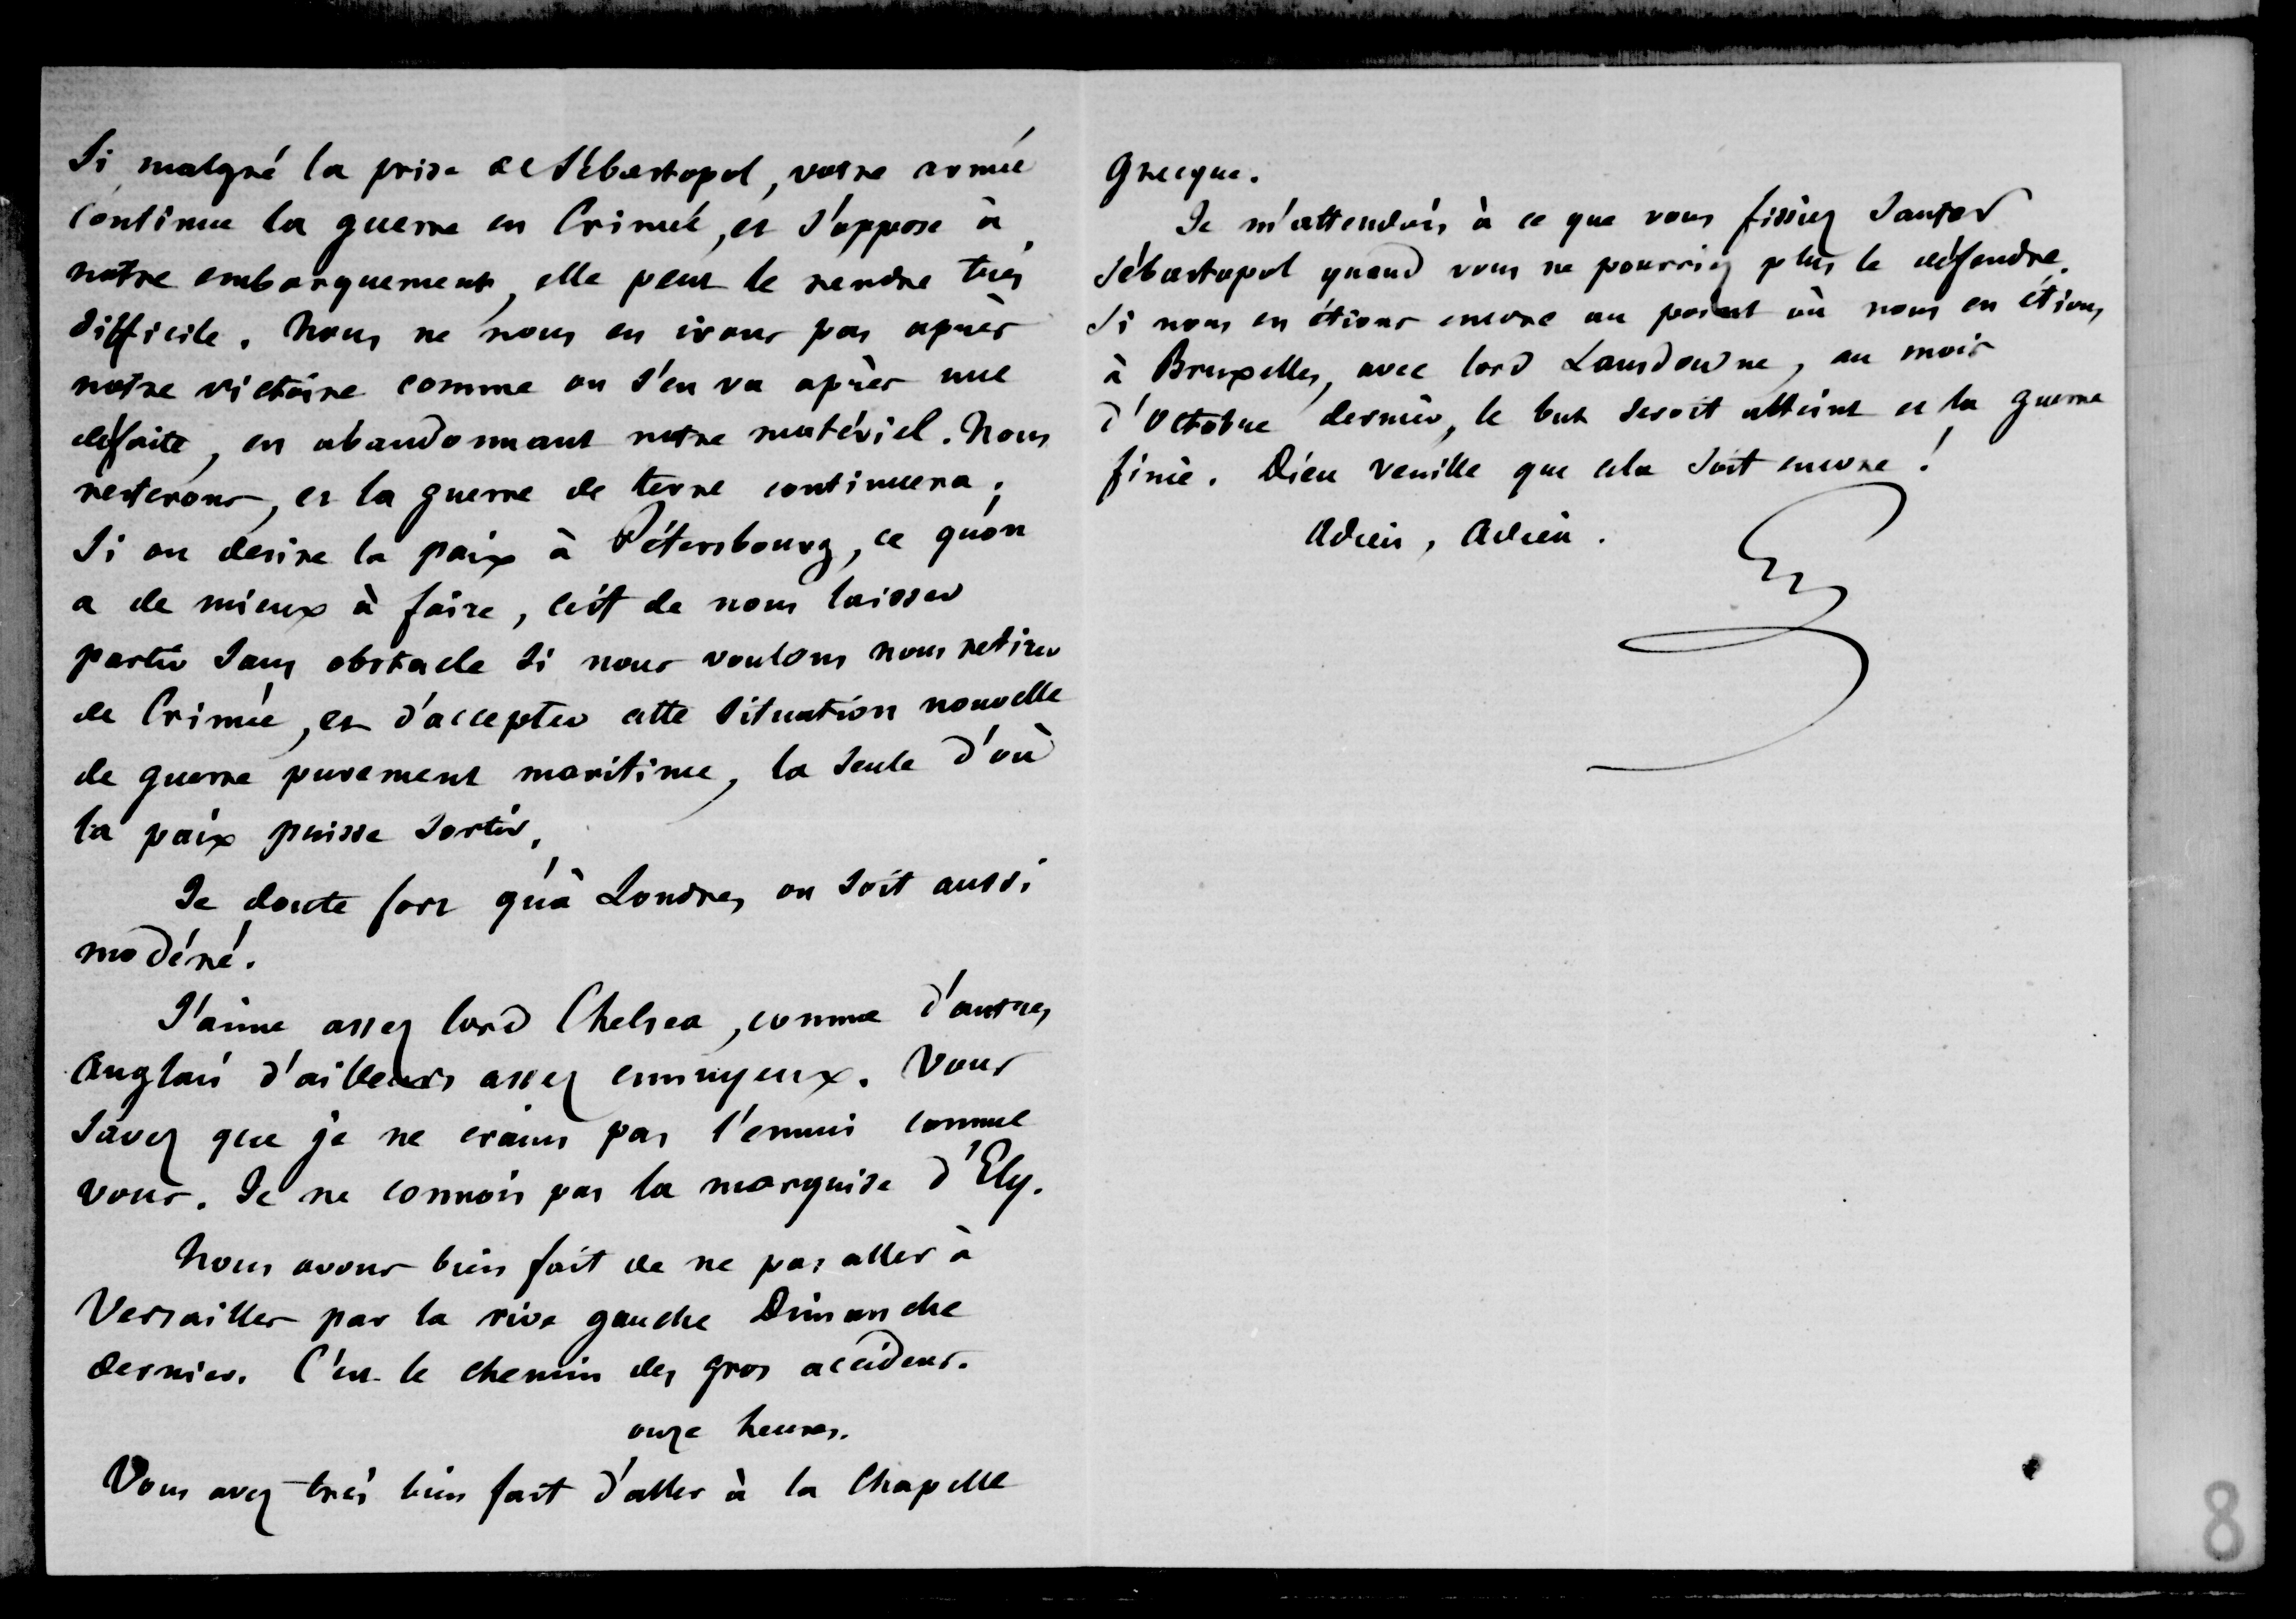 Si malgré la prise de Sébastopol, votre armée
continue la guerre en Crimée, et s'oppose à
notre embarquement, elle peut le rendre très
difficile. Nous ne nous en irons pas après
notre victoire comme on s'en va après une
défaite, en abandonnant notre matériel. Nous
resterons, et la guerre de terre continuera.
Si on desire la paix à Pétersbourg, ce qu'on
a de mieux à faire, c'est de nous laisser
partir sans obstacle si nous voulons nous retirer
de Crimée, et d'accepter cette situation nouvelle
de guerre purement maritime, la seule d'où
la paix puisse sortir.
Je doute fort qu'à Londres on soit aussi
modéré.
J'aime assez lord Chelsea, comme d'autres
Anglais d'ailleurs assez ennuyeux. Vous
savez que je ne crains pas l'ennui comme
vous. Je ne connois pas la marquise d'Ely.
Nous avons bien fait de ne pas aller à
Versailles par la rive gauche Dimanche
dernier. C'est le chemin des gros accidens.
onze heures.
Vous avez très bien fait d'aller à la Chapelle
Grecque.
Je m'attendois à ce que vous fissiez sauter
Sébastopol quand vous ne pourriez plus le défendre.
Si nous en étions encore au point où nous en étions
à Bruxelles, avec lord Lansdowne, au mois
d'Octobre dernier, le but seroit atteint et la guerre
finie. Dieu veuille que cela soit encore !
Adieu, Adieu.
8